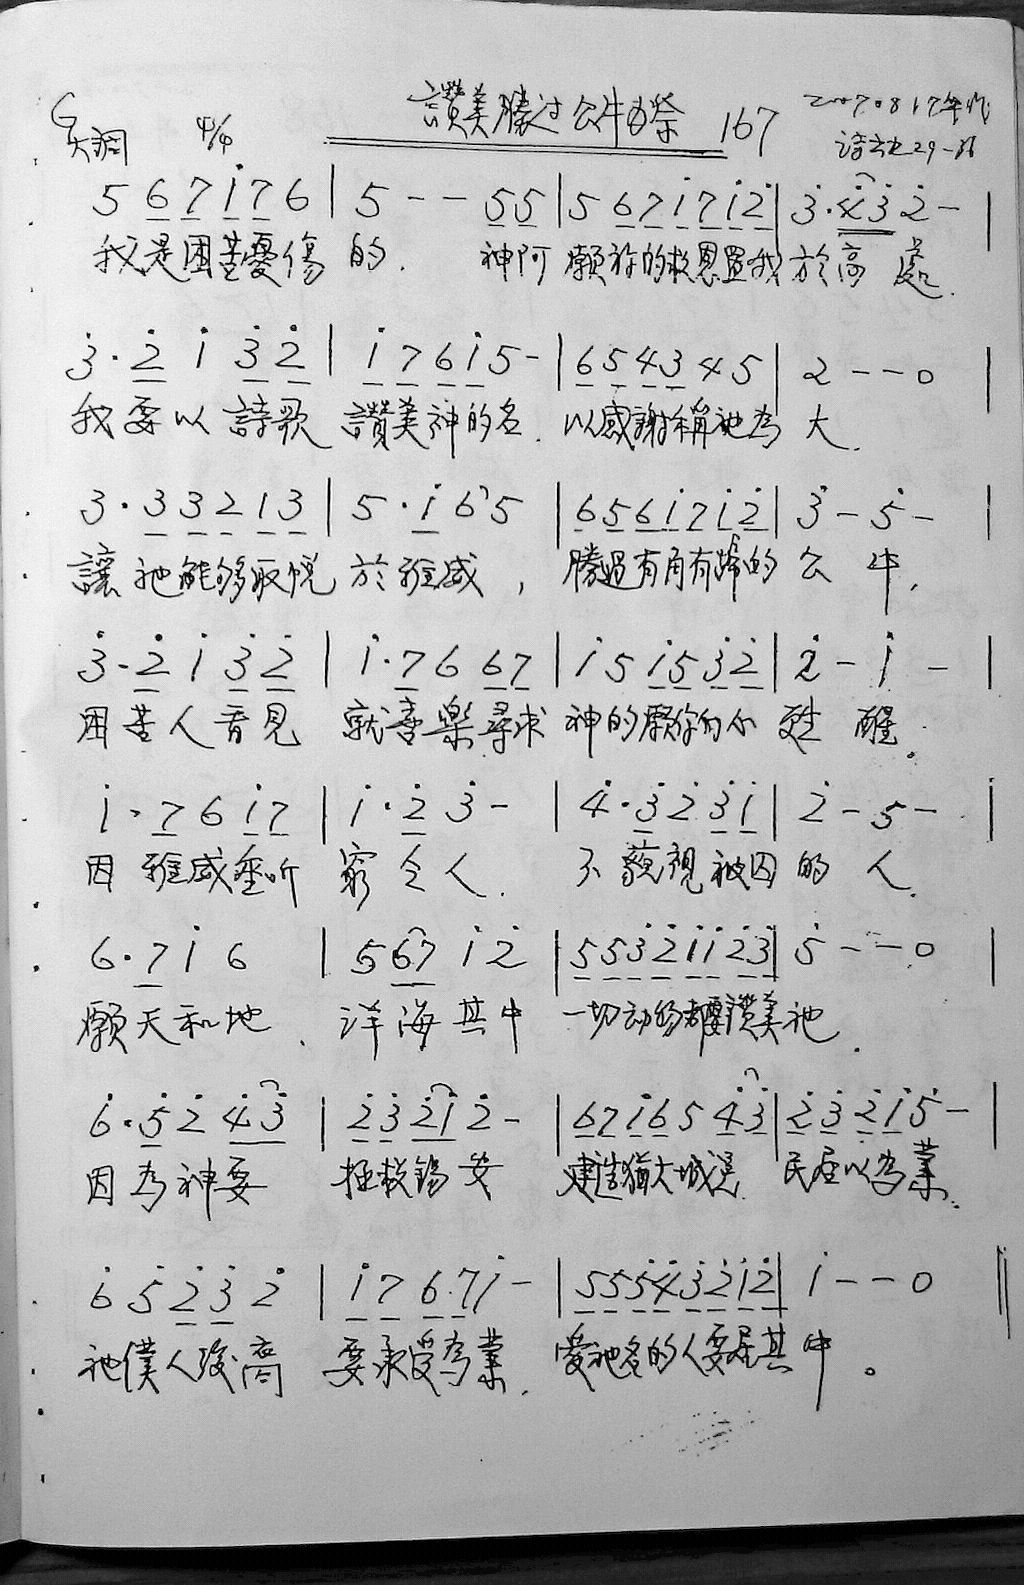 讚美勝过公牛为祭 167
G大調 4/4 詩六九29-36
5 6 7 i̇ 7 6 | 5 - - 5 5 | 5 6 7 i̇ 7 i̇ 2̇ | 3̇ · 4̇ 3̇ 2̇ - |
我是困苦憂傷 的. 神阿 願祢的救恩置我於高 處.
3̇ · 2̇ i̇ 3̇ 2̇ | i̇ 7 6 i̇ 5 - | 6 5 4 3 4 5 | 2 - - 0 |
我要以詩歌 讚美神的名. 以感謝稱祂為 大.
3 · 3 3 2 1 3 | 5 · i̇ 6 5 | 6 5 6 i̇ 7 i̇ 2̇ | 3̇ - 5̇ - |
讓祂能够取悅 於雅威, 勝過有角有蹄的 公 牛,
3̇ · 2̇ i̇ 3̇ 2̇ | i̇ · 7 6 6 7 | i̇ 5 i̇ 5 3̇ 2̇ | 2̇ - i̇ - |
困苦人看見 就喜樂尋求 神的願你们心 甦 醒。
i̇ · 7 6 i̇ 7 | i̇ · 2̇ 3̇ - | 4̇ · 3̇ 2̇ 3̇ i̇ | 2̇ - 5 - |
因雅威垂听 窮乏人. 不藐視被囚 的 人.
6 · 7 i̇ 6 | 5 6 7 i̇ 2̇ | 5 5 3̇ 2̇ i̇ i̇ 2̇ 3̇ | 5̇ - - 0 |
願天和地、 洋海其中 一切动的都要讚美祂.
6̇ · 5̇ 2̇ 4̇ 3̇ | 2̇ 3̇ 2̇ i̇ 2̇ - | 6 7 i̇ 6 5 4̇ 3̇ | 2̇ 3̇ 2̇ i̇ 5̇ - |
因為神要 拯救錫安 建造猶大城邑. 民居以為業.
6̇ 5̇ 2̇ 3̇ 2̇ | i̇ 7 6 · 7 i̇ - | 5 5 5 4̇ 3̇ 2̇ i̇ 2̇ | i̇ - - 0 ‖
祂僕人後裔 要承受為業. 愛祂名的人要居其中。